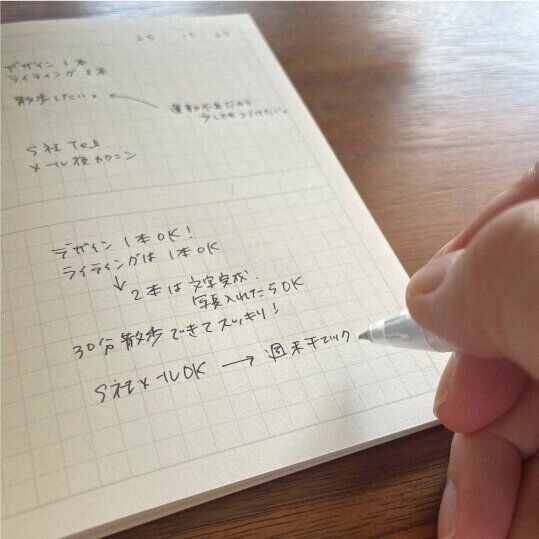 25 19 27
デザイン 1本
ライティング 3本
散歩したい。 ← 運動不足だから
少しでもつづけたい。
S社 Tel.
メール後カクニン
デザイン 1本OK!
ライティングは 1本OK
↓ 2本は文字完成.
写真入れたらOK
30分散歩できてスッキリ!
S社メールOK → 週末チェック